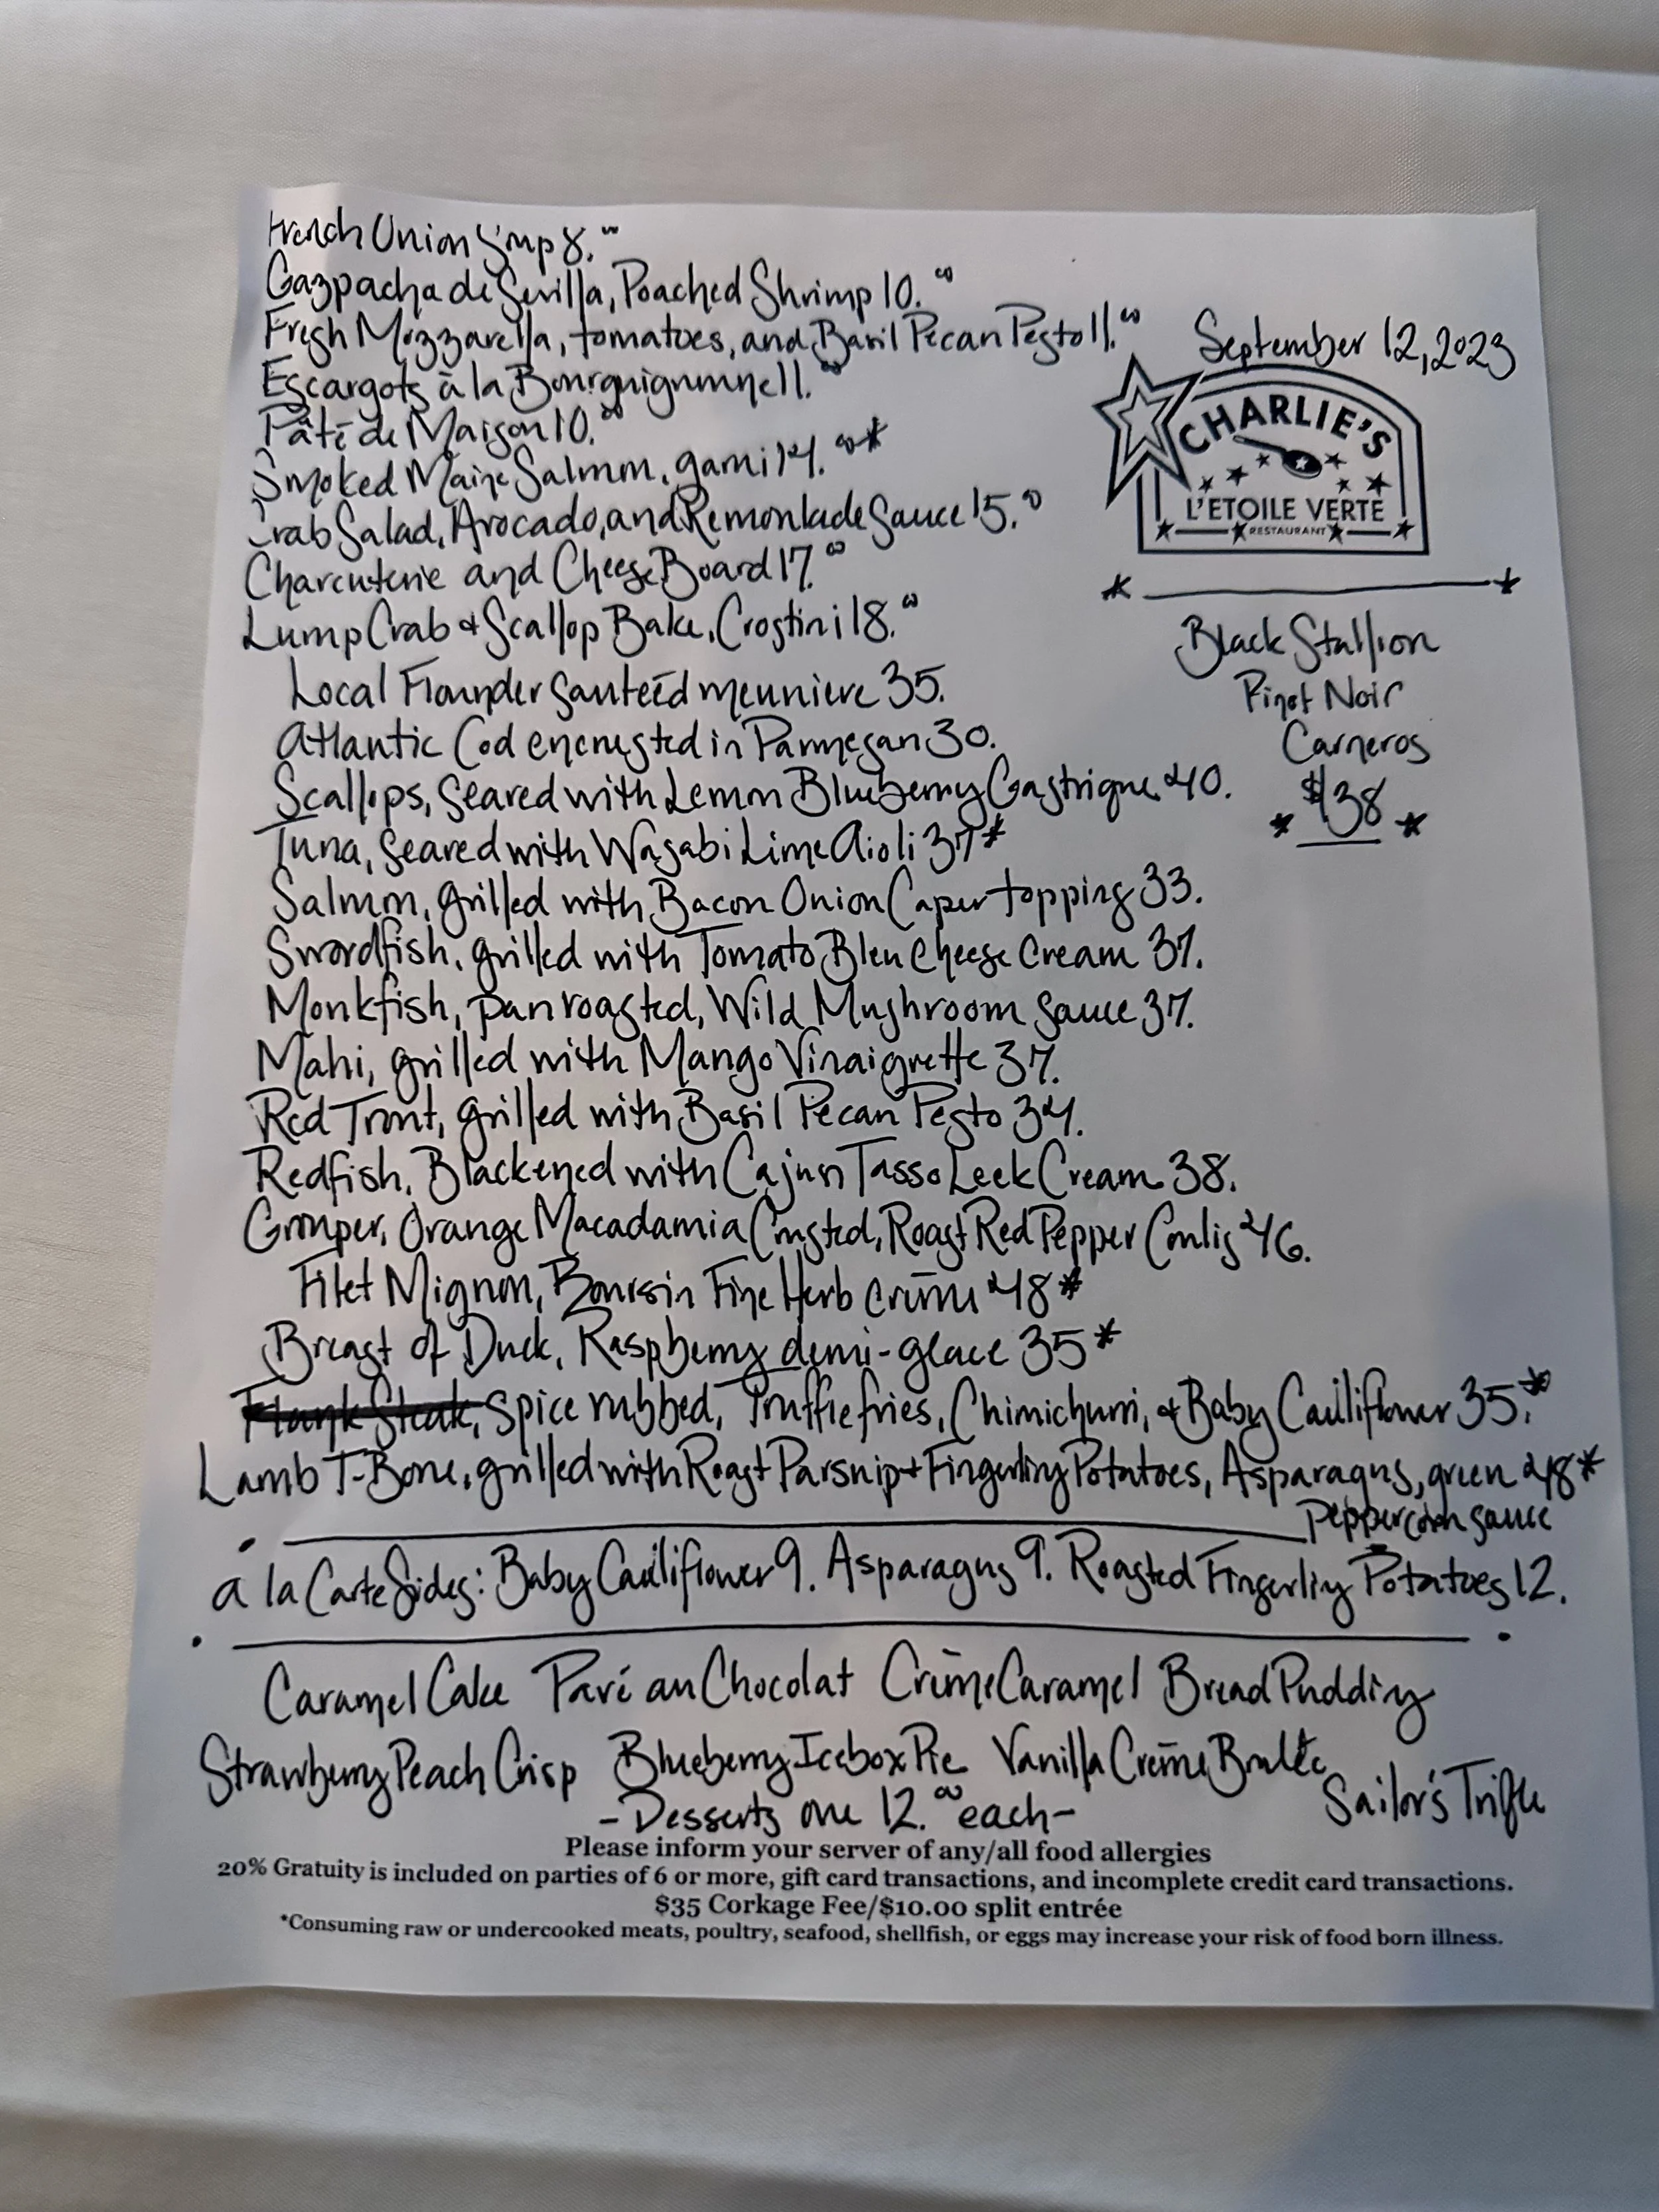 French Onion Soup 8.00
Gazpacha de Sevilla, Poached Shrimp 10.00
Fresh Mozzarella, tomatoes, and Basil Pecan Pesto 11.00
Escargots à la Bourguignonne 11.00
Pâté de Maison 10.00
Smoked Maine Salmon, garni 14.00*
Crab Salad, Avocado, and Remoulade Sauce 15.00
Charcuterie and Cheese Board 17.00
Lump Crab & Scallop Bake, Crostini 18.00
September 12, 2023
CHARLIE'S
L'ETOILE VERTE
RESTAURANT
Black Stallion
Pinot Noir
Carneros
$38
Local Flounder sauteéd meuniere 35.
Atlantic Cod encrusted in Parmesan 30.
Scallops, seared with Lemon Blueberry Gastrique 40.
Tuna, seared with Wasabi Lime Aioli 37*
Salmon, grilled with Bacon Onion Caper topping 33.
Swordfish, grilled with Tomato Bleu Cheese Cream 37.
Monkfish, pan roasted, Wild Mushroom Sauce 37.
Mahi, grilled with Mango Vinaigrette 37.
Red Trout, grilled with Basil Pecan Pesto 34.
Redfish, Blackened with Cajun Tasso Leek Cream 38.
Grouper, Orange Macadamia Crusted, Roast Red Pepper Coulis 46.
Filet Mignon, Boursin Fine Herb crème 48*
Breast of Duck, Raspberry demi-glace 35*
Flank Steak, Spice rubbed, Truffle fries, Chimichurri, & Baby Cauliflower 35.*
Lamb T-Bone, grilled with Roast Parsnip + Fingerling Potatoes, Asparagus, green 48*
Peppercorn sauce
a la Carte Sides: Baby Cauliflower 9. Asparagus 9. Roasted Fingerling Potatoes 12.
Caramel Cake Pavé au Chocolat Crème Caramel Bread Pudding
Strawberry Peach Crisp Blueberry Icebox Pie Vanilla Crème Brulée Sailor's Trifle
-Desserts are 12.00 each-
Please inform your server of any/all food allergies
20% Gratuity is included on parties of 6 or more, gift card transactions, and incomplete credit card transactions.
$35 Corkage Fee/$10.00 split entrée
*Consuming raw or undercooked meats, poultry, seafood, shellfish, or eggs may increase your risk of food born illness.